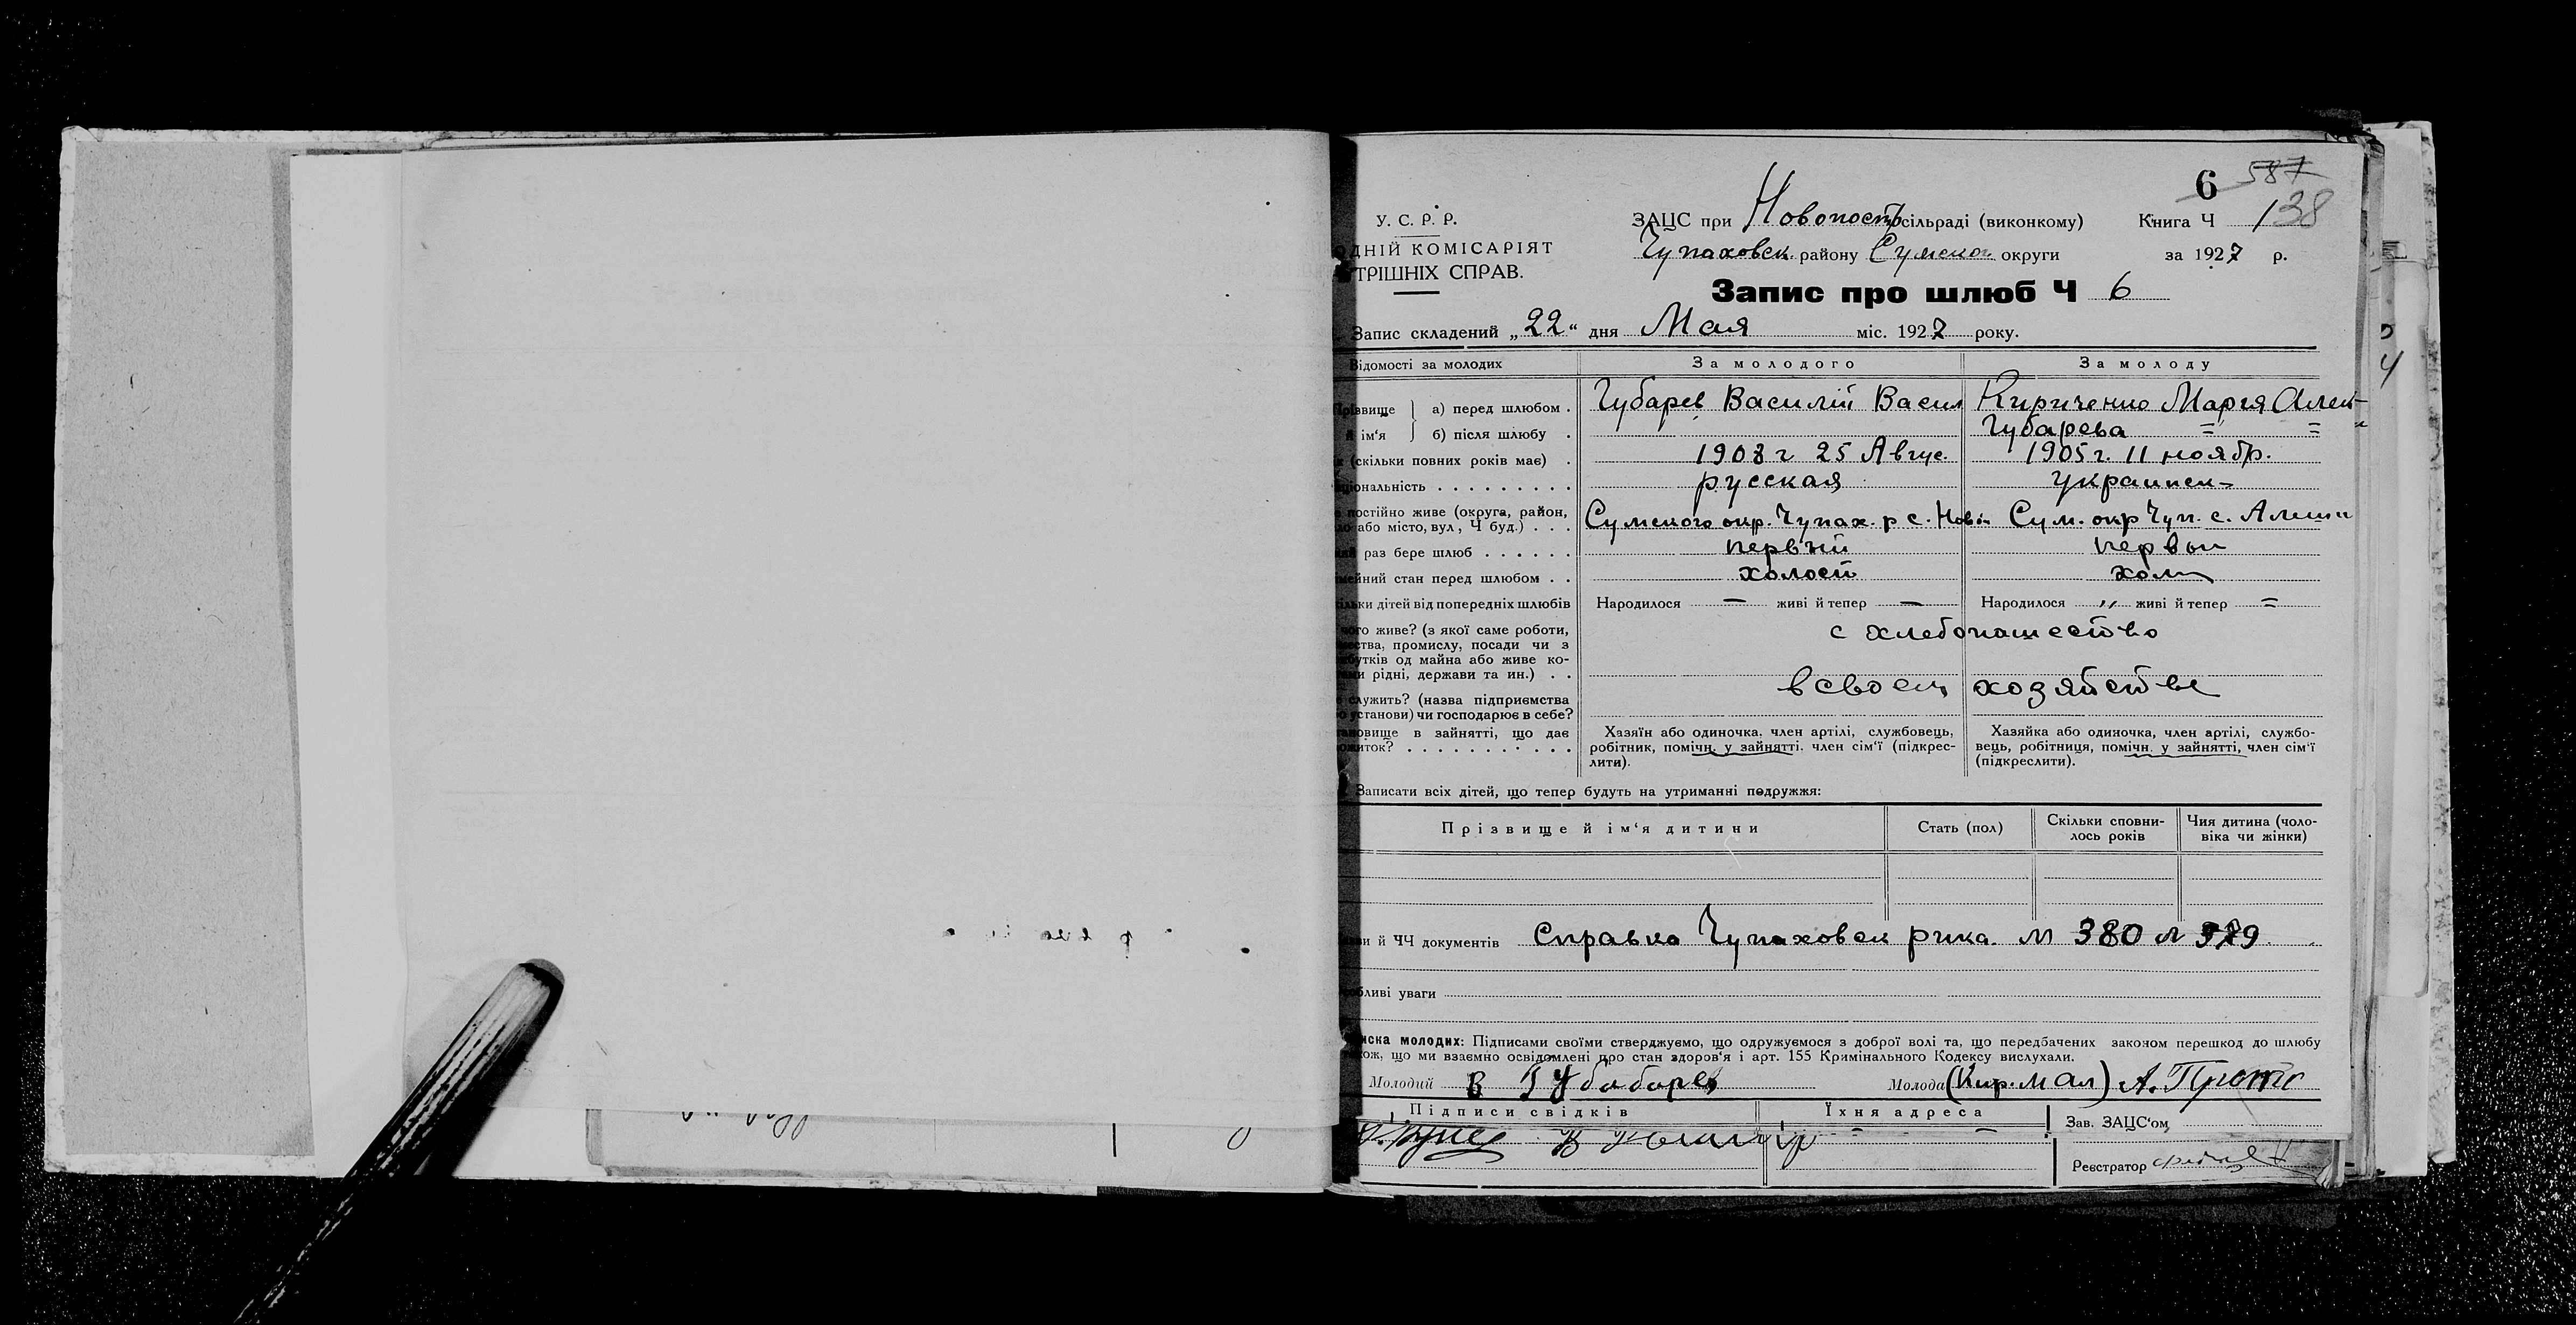 6 587
138
У. С. Р. Р.
ЗАЦС при Новопостр сільраді (виконкому) Книга Ч
ОДНІЙ КОМІСАРІЯТ
Чупаховск. району Сумской округи за 1927 р.
ТРІШНІХ СПРАВ.
Запис про шлюб Ч 6
Запис складений „22“ дня Мая міс. 1927 року.
Відомості за молодих За молодого За молоду
Прізвище а) перед шлюбом . Губарев Василій Васил Кириченко Мария Алек-
й ім‘я б) після шлюбу . Губарева = = "
(скільки повних років має) . 1908 г 25 Авгус. 1905 г. 11 ноябр.
ціональність . . . . . . . . . русская Украинск-
постійно живе (округа, район, Сумского окр. Чупах. р с. Нов Сум. окр Чуп. с. Алеш
або місто, вул, Ч буд.) . . .
раз бере шлюб . . . . . . первый первы
мейний стан перед шлюбом . . холост хол
ільки дітей від попередніх шлюбів Народилося — живі й тепер — Народилося „ живі й тепер =
чого живе? (з якої саме роботи, с хлебопашество
ства, промислу, посади чи з
бутків од майна або живе ко-
ми рідні, держави та ин.) . . в своем хозяйстве
служить? (назва підприємства
установи) чи господарює в себе?
ановище в зайнятті, що дає Хазяїн або одиночка, член артілі, службовець, Хазяйка або одиночка, член артілі, службо-
ожиток? . . . . . . . . . . . робітник, помічн. у зайнятті. член сім‘ї (підкрес- вець, робітниця, помічн. у зайнятті, член сім‘ї
лити). (підкреслити).
Записати всіх дітей, що тепер будуть на утриманні подружжя:
Прізвище й ім‘я дитини Стать (пол) Скільки сповни- Чия дитина (чоло-
лось років віка чи жінки)
й ЧЧ документів Справка Чупаховск рика. № 380 № 379
бливі уваги
иска молодих: Підписами своїми стверджуємо, що одружуємося з доброї волі та, що передбачених законом перешкод до шлюбу
кож, що ми взаємно освідомлені про стан здоров‘я і арт. 155 Кримінального Кодексу вислухали.
Молодий В Губабарев Молода (Кир. Мал)
Підписи свідків Їхня адреса Зав. ЗАЦС‘ом
Реєстратор